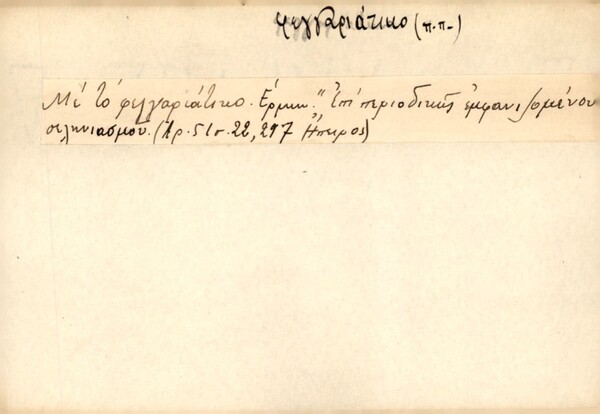 φεγγαριάτικο (π.π.)
Μέ τό φεγγαριάτικο. Ἑρμην. "Ἐπί περιοδικῶς ἐμφανιζομένου
σεληνιασμοῦ. (Ἀρ. 51 σ. 22, 297 Ἤπειρος)